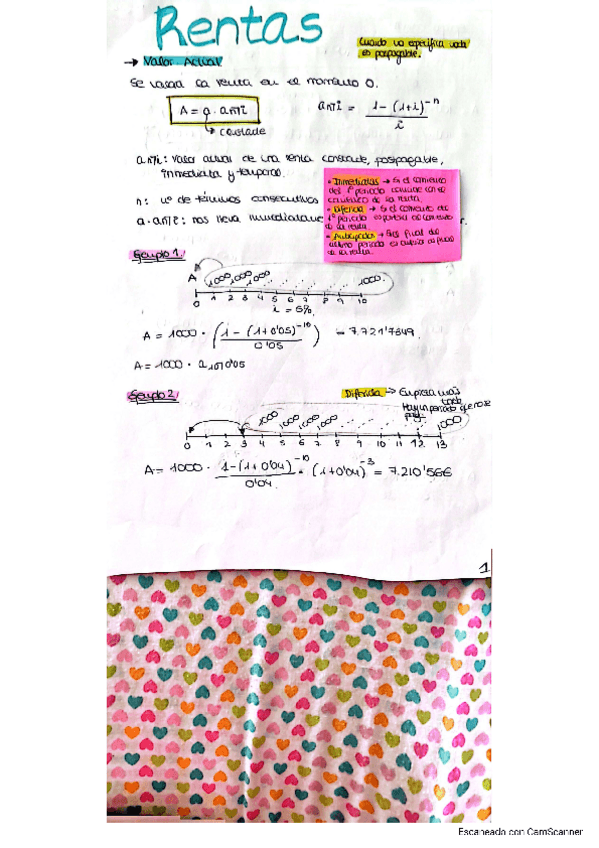 Rentas
Cuando no especifica nada
es pospagable.
→ Valor Actual
Se valora la renta en el momento 0.
A = a · an̅i
→ constante
an̅i = 1 - (1+i)⁻ⁿ / i
an̅i: valor actual de una renta constante, pospagable,
inmediata y temporal.
n: nº de términos consecutivos
a · an̅i: nos lleva inmediatame
• Inmediatas → Si el comienzo
del 1º periodo coincide con el
de la renta.
• Diferida → Si el comienzo del
1º periodo es posterior al comienzo
de la renta.
• Anticipadas → Si el final del
último periodo es anterior al final
de la renta.
r.
Ejemplo 1.
A 1000 1000 1000 1000.
0 1 2 3 4 5 6 7 8 9 10
i = 5%.
A = 1000 · (1 - (1+0'05)⁻¹⁰ / 0'05) = 7.721'7349.
A = 1000 · a10̅0'05
Ejemplo 2.
Diferida → Empieza más
tarde
Hay un periodo que no se
1000 1000 1000 1000 1000
0 1 2 3 4 5 6 7 8 9 10 11 12 13
A = 1000 · 1 - (1+0'04)⁻¹⁰ / 0'04 · (1+0'04)⁻³ = 7.210'566
1
Escaneado con CamScanner